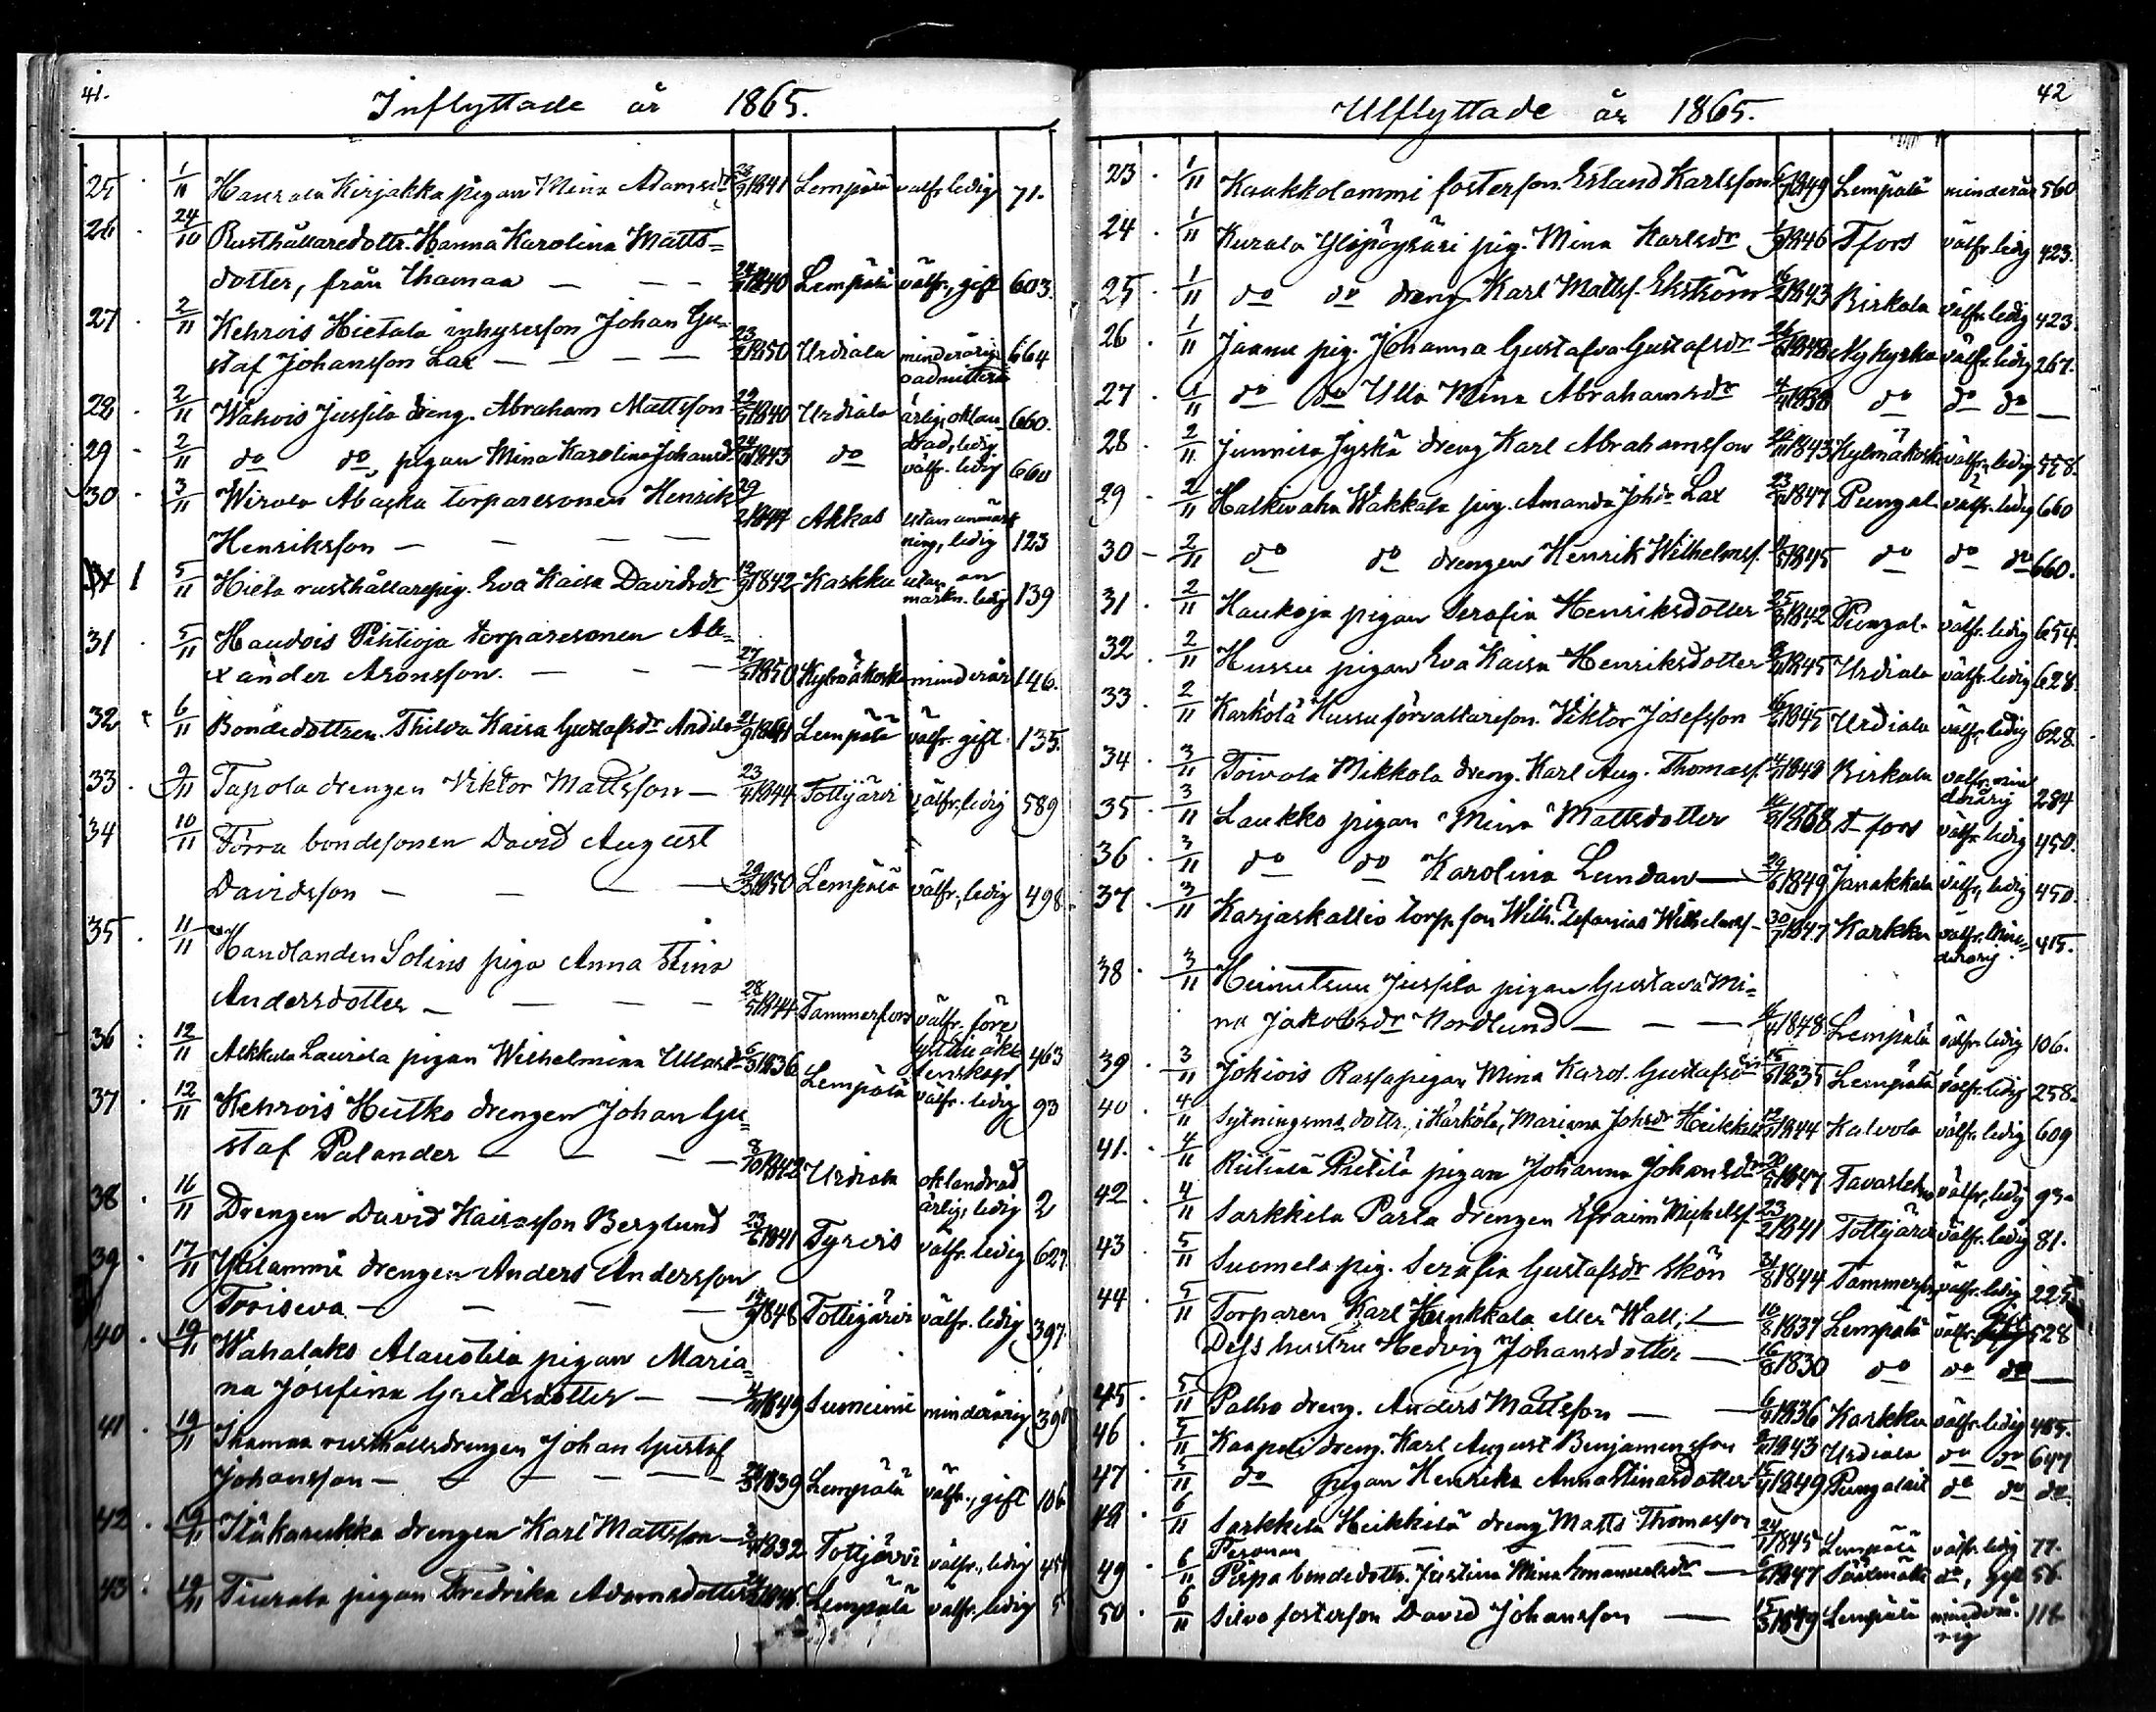 41.
Inflyttade år 1865.
25 · 1/11 pigan Mina Adamsdr 1841 Lempälä välfr. ledig 71.
26 · 24/10 Rusthållaredottr. Hanna Karolina Matts=
dotter, från — — 1840 Lempälä välfr., gift 603.
27 · 2/11 Kehrois Hietala inhyseson Johan Gu=
staf Johansson Lax — — — — 1850 Urdiala minderårig oadmitterad 664
28 · 2/11 Wahois Jussila dreng. Abraham Mattsson 1840 Urdiala ärlig, oklan=
drad, ledig 660.
29 · 2/11 do do, pigan Mina Karolina Johansdr 1843 do välfr. ledig 660
30 · 3/11 Wirala torparesonen Henrik
Henriksson — — — — 29/2 1844 Akkas utan anmärk
ning, ledig 123
1 5/11 Hieta rusthållarepig. Eva Kaisa Davidsdr 1842 Karkku utan an
märkn. ledig 139
31 · 5/11 torparesonen Ale=
xander Aronsson. — — 27/5 1850 Kylmäkoski minderår 146.
32 6/11 Bondedottren Kaisa Gustafsdr Lempälä välfr. gift 135.
33 · 9/11 Tapola drengen Viktor Mattsson — 23/4 1844 Tottijärvi välfr. ledig 589
34 10/11 bondesonen David August
Davidsson — — — — 1850 Lempälä välfr., ledig 498.
35 · 11/11 Handlanden Solins piga Anna Stina
Andersdotter — — — — 28/5 1844 Tammerfors välfr. före
463
36 : 12/11 Alkkula Laurila pigan Wilhelmina 1836 Lempälä välfr. ledig 93
37 · 12/11 Kehrois Hutko drengen Johan Gu=
staf Palander — — — — 8/10 1842 Urdiala oklandrad
ärlig, ledig 2
38 · 16/11 Drengen David Kaisasson Berglund 23/6 1841 Tyrvis välfr. ledig 627.
39 · 17/11 drengen Anders Andersson
Toriseva — — — — 1848 Tottijärvi välfr. ledig 397.
40 · 19/11 Wahalaks Alaustila pigan Maria=
na Josefina — — 1849 Suoniemi minderårig
41 · 19/11 rusthållsdrengen Johan Gustaf
Johansson — — — — 1839 Lempälä välfr., gift 106
42 · 19/11 drengen Karl Mattsson — 1832 Tottijärvi välfr., ledig
43 · 19/11 Tiurala pigan Fredrika Adamsdotter Lempälä välfr., ledig
42
Utflyttade år 1865.
23 · 1/11 Kaukkolammi fosterson Erland Karlsson 1849 Lempälä minderår 560
24 · 1/11 Kurala Ylöpöysäri pig. Mina Karlsdr 1846 T fors välfr. ledig 423.
25 · 1/11 do do dreng Karl Mattss. Ekström 1843 Birkala välfr. ledig 423.
26 · 1/11 pig. Johanna Gustafva Gustafsdr 1848 Nykyrko välfr. ledig 267.
27 · 1/11 do do Ulla Mina Abrahamsdr 1838 do do do —
28 · 2/11 Junnila Jyskä dreng Karl Abrahamsson 1843 Kylmäkoski välfr. ledig 558.
29 · 2/11 Halkivaha Wakkala pig. Amanda Johdr Lax 23 1847 Pungal. välfr. ledig 660
30 — 2/11 do do drengen Henrik Wilhelmss. 1845 do do do 660.
31 · 2/11 Haukoja pigan Serafia Henriksdotter 25 1842 Pungal. välfr. ledig 654.
32 · 2/11 Hussu pigan Eva Kaisa Henriksdotter 1845 Urdiala välfr. ledig 628.
33 · 2/11 Karkola Hussu förvaltareson. Viktor Josefsson 1845 Urdiala välfr. ledig 628.
34 · 3/11 Toivola Mikkola dreng. Karl Aug. Thomass. 1849 Birkala välfr. min
derårig 284
35 · 3/11 Laukko pigan Mina Mattsdotter T fors välfr. ledig 450.
36 · 3/11 do do Karolina Lundan — 29/6 1849 Janakkala välfr. ledig 450.
37 · 3/11 Karjaskallio torp. son Wilh. Wilhelmss. 30/7 1847 Karkku välfr. min=
derårig 415.
38 · 3/11 Jussila pigan Gustava Mi=
na Jakobsdr Nordlund — — — 1848 Lempälä välfr. ledig 106.
39 · 3/11 Jokiois Rassa pigan Mina Karol. Gustafsdr 1835 Lempälä välfr. ledig 258.
40 · 4/11 Sytningsms dottr. i Karkola, Mariana Johsdr Heikkilä 1844 Kalvola välfr. ledig 609
41. · 4/11 pigan Johanna Johansdr 1847 Tavastehus välfr., ledig 93.
42 · 4/11 Sarkkila Parla drengen Efraim Mickelss. 23/2 1841 Tottijärvi välfr. ledig 81.
43 · 5/11 Suomela pig. Serafia Gustafsdr Skön 31/8 1844 Tammerfors välfr. ledig 225.
44 · 5/11 Torparen Karl eller Wall, — 10/8 1837 Lempälä välfr. gift 528
Dess hustru Hedvig Johansdotter — 16 1830 do do do —
45 · 5/11 Palho dreng. Anders Mattsson — — 1836 Karkku välfr. ledig 485.
46 · 5/11 Kaapeli dreng. Karl August Benjaminsson 1843 Urdiala do do 647
47 · 5/11 do pigan Henrika Anna Stinasdotter 1849 Pungalait do do do.
48 · 6/11 Sarkkila Heikkilä dreng Matts Thomasson
— — — 24/7 1845 Lempälä välfr. ledig 77.
49 · 6/11 bondedottr. Justina Mina Emanuelsdr — 1847 do, gift 56.
50 · 6/11 Silvo fosterson David Johansson — 15/3 1849 Lempälä minderå=
rig 118